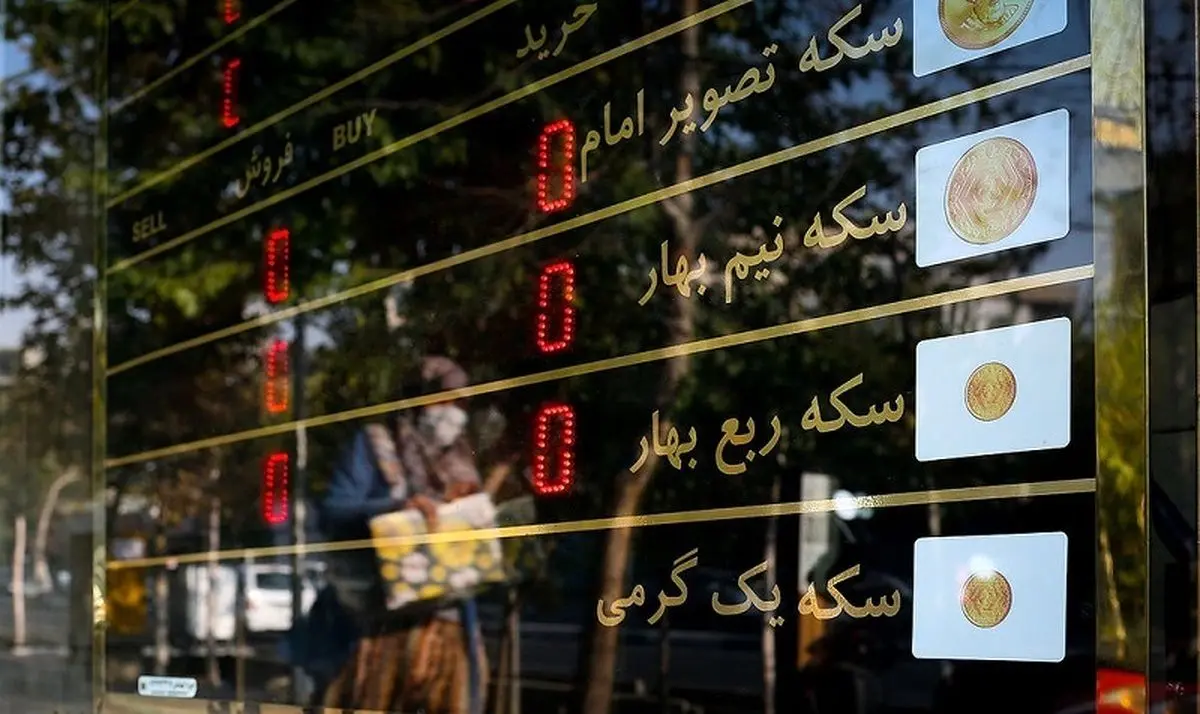 خرید
BUY
فروش
SELL
سکه تصویر امام
0
0
سکه نیم بهار
0
0
سکه ربع بهار
0
0
سکه یک گرمی